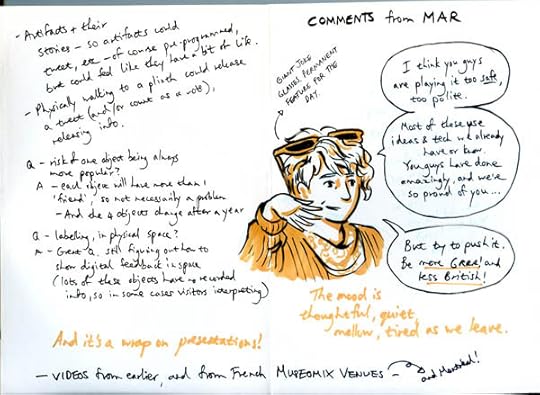 - Artifacts + their
stories - so artifacts could
tweet, etc - of course pre-programmed,
but could feel like they have a bit of life.
- Physically walking to a plinth could release
a tweet (and/or count as a vote),
releasing info.
Q - risk of one object being always
more popular?
A - each object will have more than 1
'friend', so not necessarily a problem
- And the 4 objects change after a year
Q - labelling, in physical space?
A - Great Q, still figuring out how to
show digital feedback in space
(lots of these objects have no recorded
info, so in some cases visitors interpreting)
And it's a wrap on presentations!
COMMENTS from MAR
GIANT JOKE
GLASSES, PERMANENT
FEATURE FOR THE
DAY.
I think you guys
are playing it too safe,
too polite.
Most of these use
ideas & tech we already
have or know.
You guys have done
amazingly, and we're
so proud of you...
But try to push it.
Be more GREEK! and
less British!
The mood is
thoughtful, quiet,
mellow, tired as we leave.
- VIDEOS from earlier, and from French MUSEOMIX VENUES -
and Montreal!